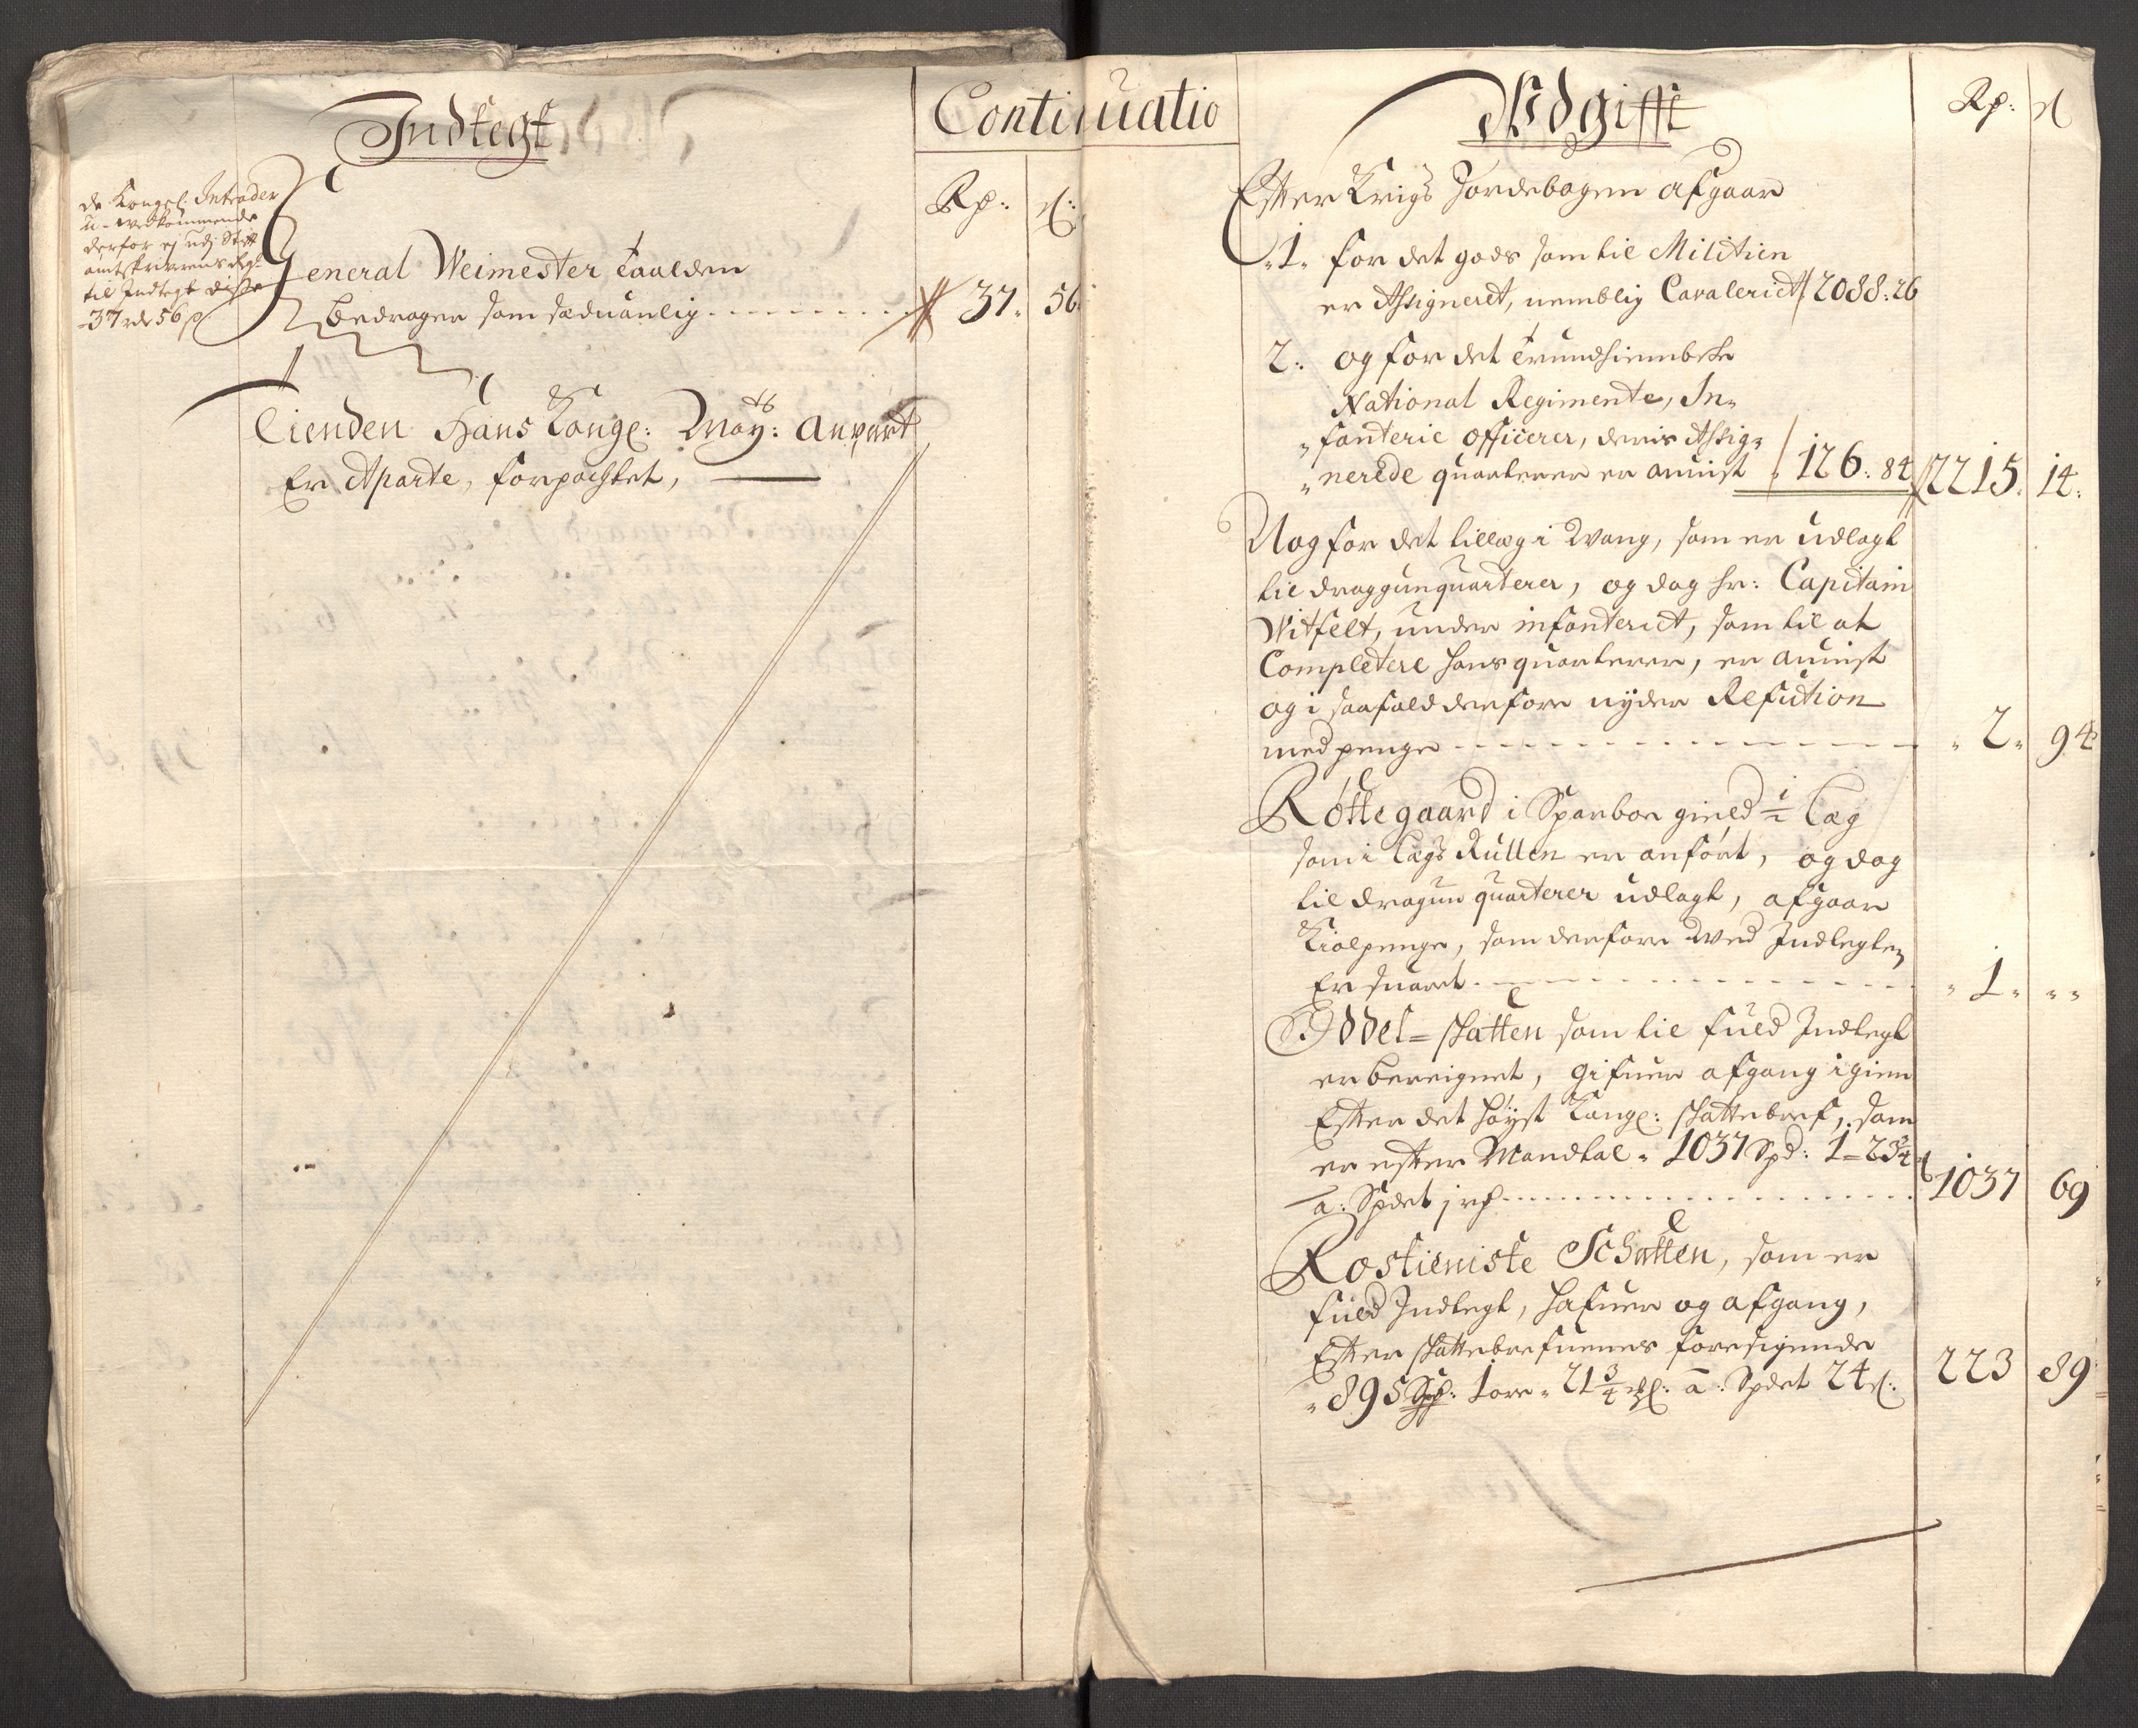 Indtegt
Continuatio
Rd: ß:
de Kongel: Intrader
u-wedkommende
derfor ej udj Stift
amtskrifverens Regn:
til Indtegt disse
37 rdr 56 ß
General Weimester Taalden
bedrager som sædvanlig 37. 56.
Tienden Hans Kongl: Mayts: Anpart
Er Aparte, forpachtet,
Udgifft
Rd: ß
Efter Krigs Jordebogen afgaar
1. for det gods som til Militien
er Assigneret, nemblig Cavaleriet 2088: 26
2. og for det Trundhiembske
National Regimente, In-
fanterie officerer, deris Assig-
nerede quarterer er anvist 126: 84 2215. 14.
Nog for det tillæg i Wang, som er udlagt
til draggunquarterer, og dog hr: Capitain
Witfelt, under infanteriet, som til at
Completere hans quarterer, er anvist
og i saafald derfore nyder Refution
med penge 2. 94
Røttegaard i Sparboe gield 1/2 Læg
som i Lægs Rullen er anført, og dog
til dragun quarterer udlagt, afgaar
Kiolpenge, som derfore wed Indtegten
Er svaret 1. "
Oddel=skatten som til fuld Indtegt
er bereignet, gifuer afgang igien
Efter det høyst Kongl: skattebref, som
er efter Mandtal 1037 Spd: 1 - 23 3/4
a: Spdet j rd 1037 69
Rostieniste Schatten, som er
fuld Indtegt, hafuer og afgang,
Efter skattebrefuenes foresigende
895 Spd: 1 ore 21 3/4 ml: a: Spdet 24 ß: 223 89